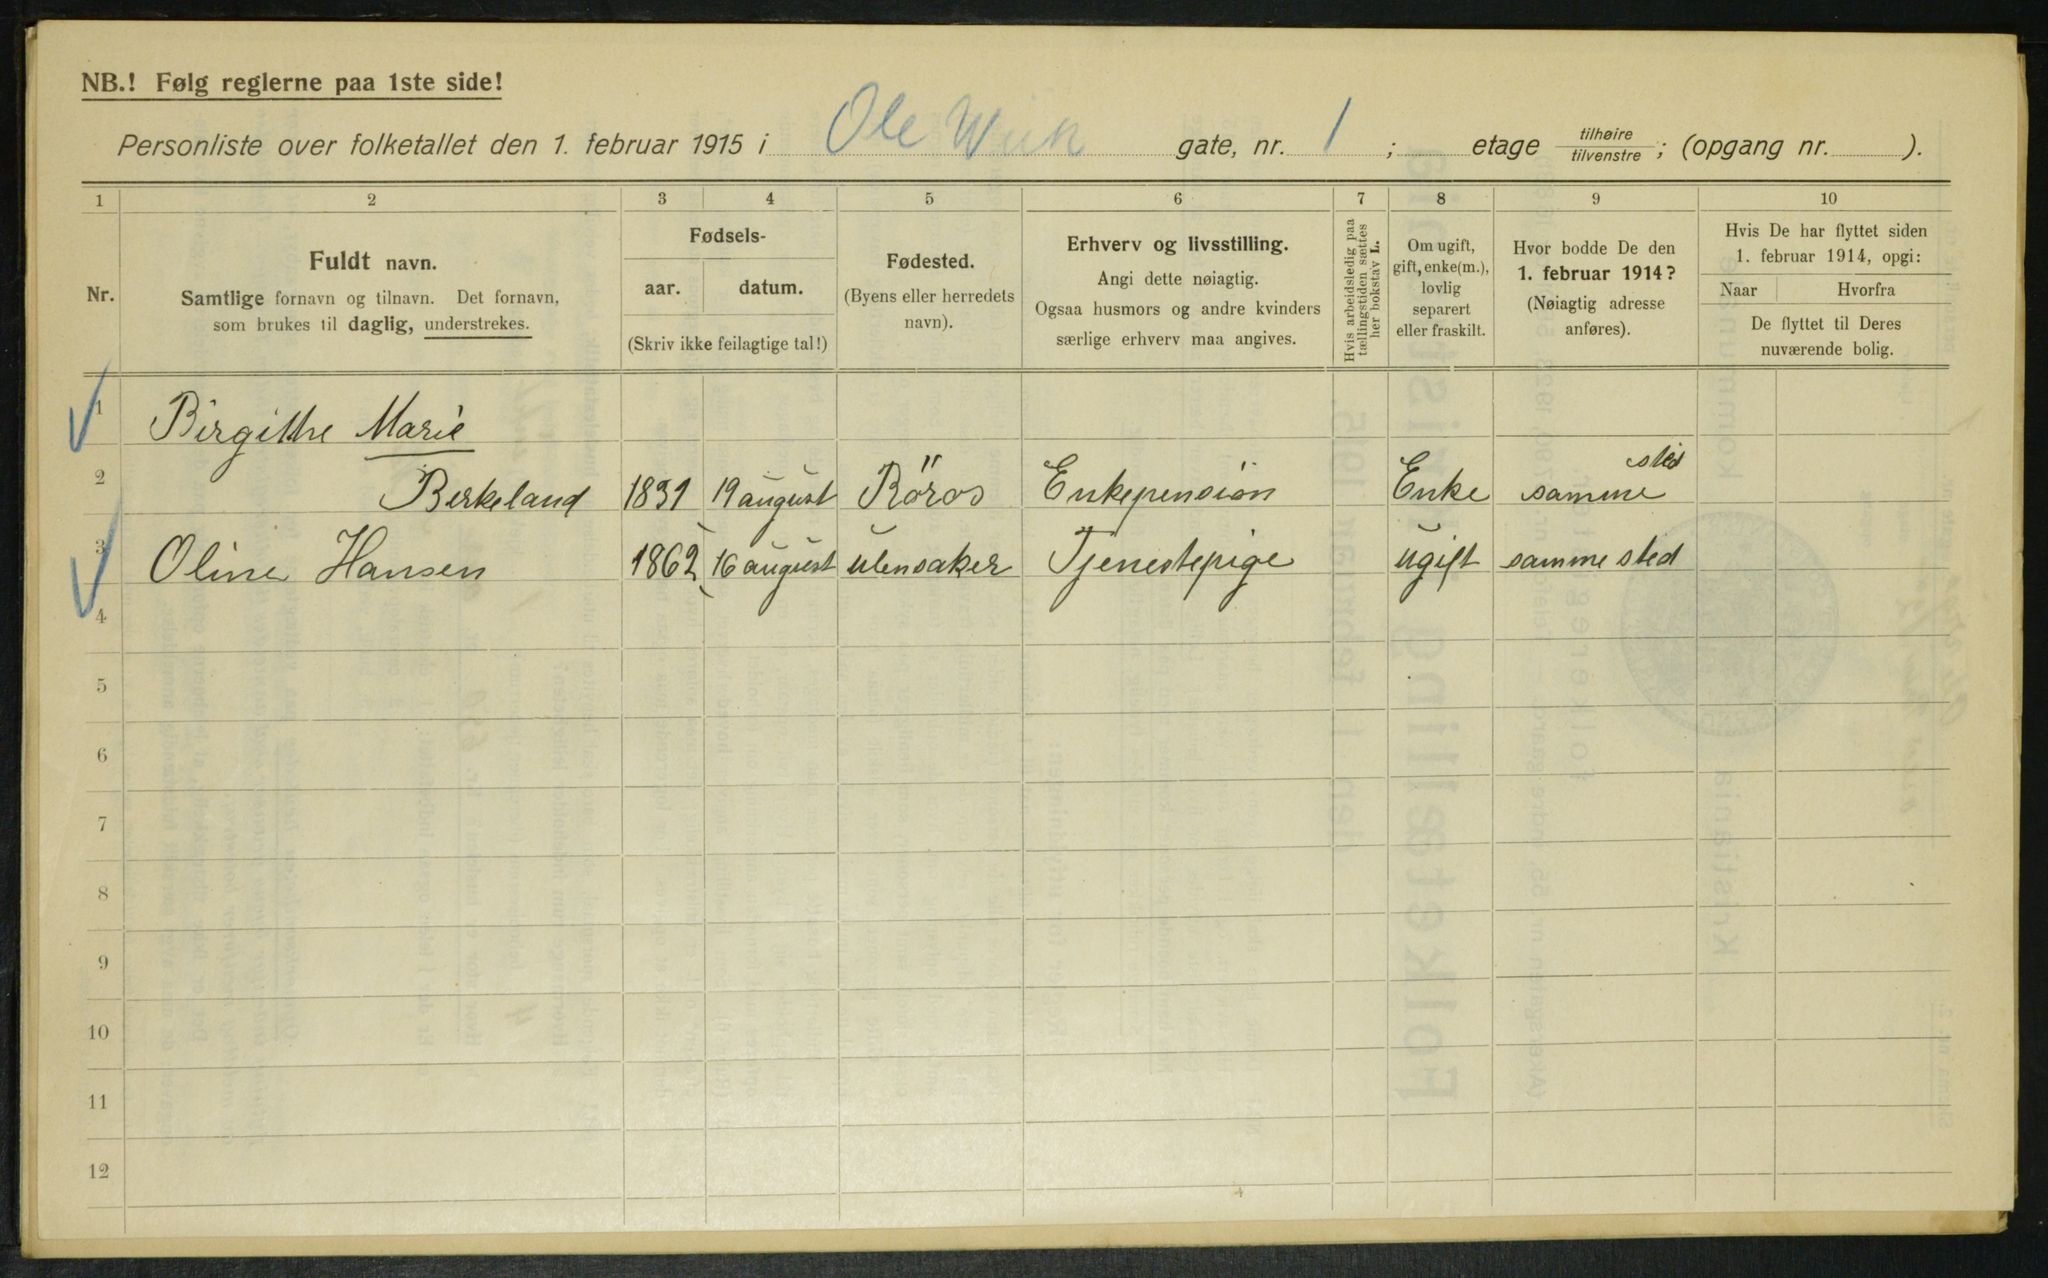 NB.! Følg reglerne paa 1ste side!
Personliste over folketallet den 1. februar 1915 i Ole Wiik gate, nr. 1 ; etage tilhøire tilvenstre ; (opgang nr. ).
1 2 3 4 5 6 7 8 9 10
Nr.
Fuldt navn.
Samtlige fornavn og tilnavn. Det fornavn,
som brukes til daglig, understrekes.
Fødsels-
aar. datum.
(Skriv ikke feilagtige tal!)
Fødested.
(Byens eller herredets
navn).
Erhverv og livsstilling.
Angi dette nøiagtig.
Ogsaa husmors og andre kvinders
særlige erhverv maa angives.
Hvis arbeidsledig paa
tællingstiden sættes
her bokstav L.
Om ugift,
gift, enke(m.),
lovlig
separert
eller fraskilt.
Hvor bodde De den
1. februar 1914?
(Nøiagtig adresse
anføres).
Hvis De har flyttet siden
1. februar 1914, opgi:
Naar Hvorfra
De flyttet til Deres
nuværende bolig.
1 Birgithe Marie
2 Berkeland 1831 19 august Röros Enkepension Enke samme sted
3 Oline Hansen 1862 16 august ulensaker Tjenestepige ugift samme sted
4
5
6
7
8
9
10
11
12